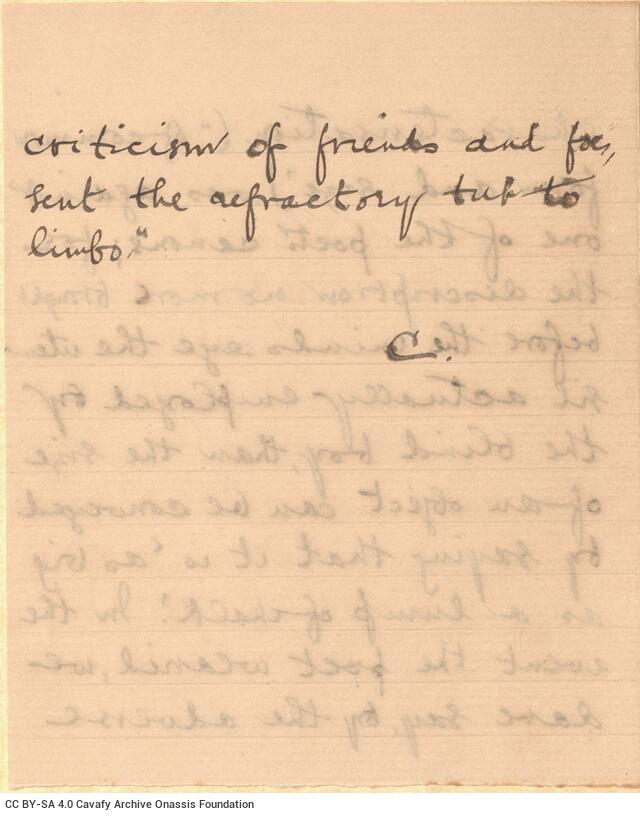 criticism of friends and foes,
sent the refractory tub to
limbo."
C.
CC BY-SA 4.0 Cavafy Archive Onassis Foundation